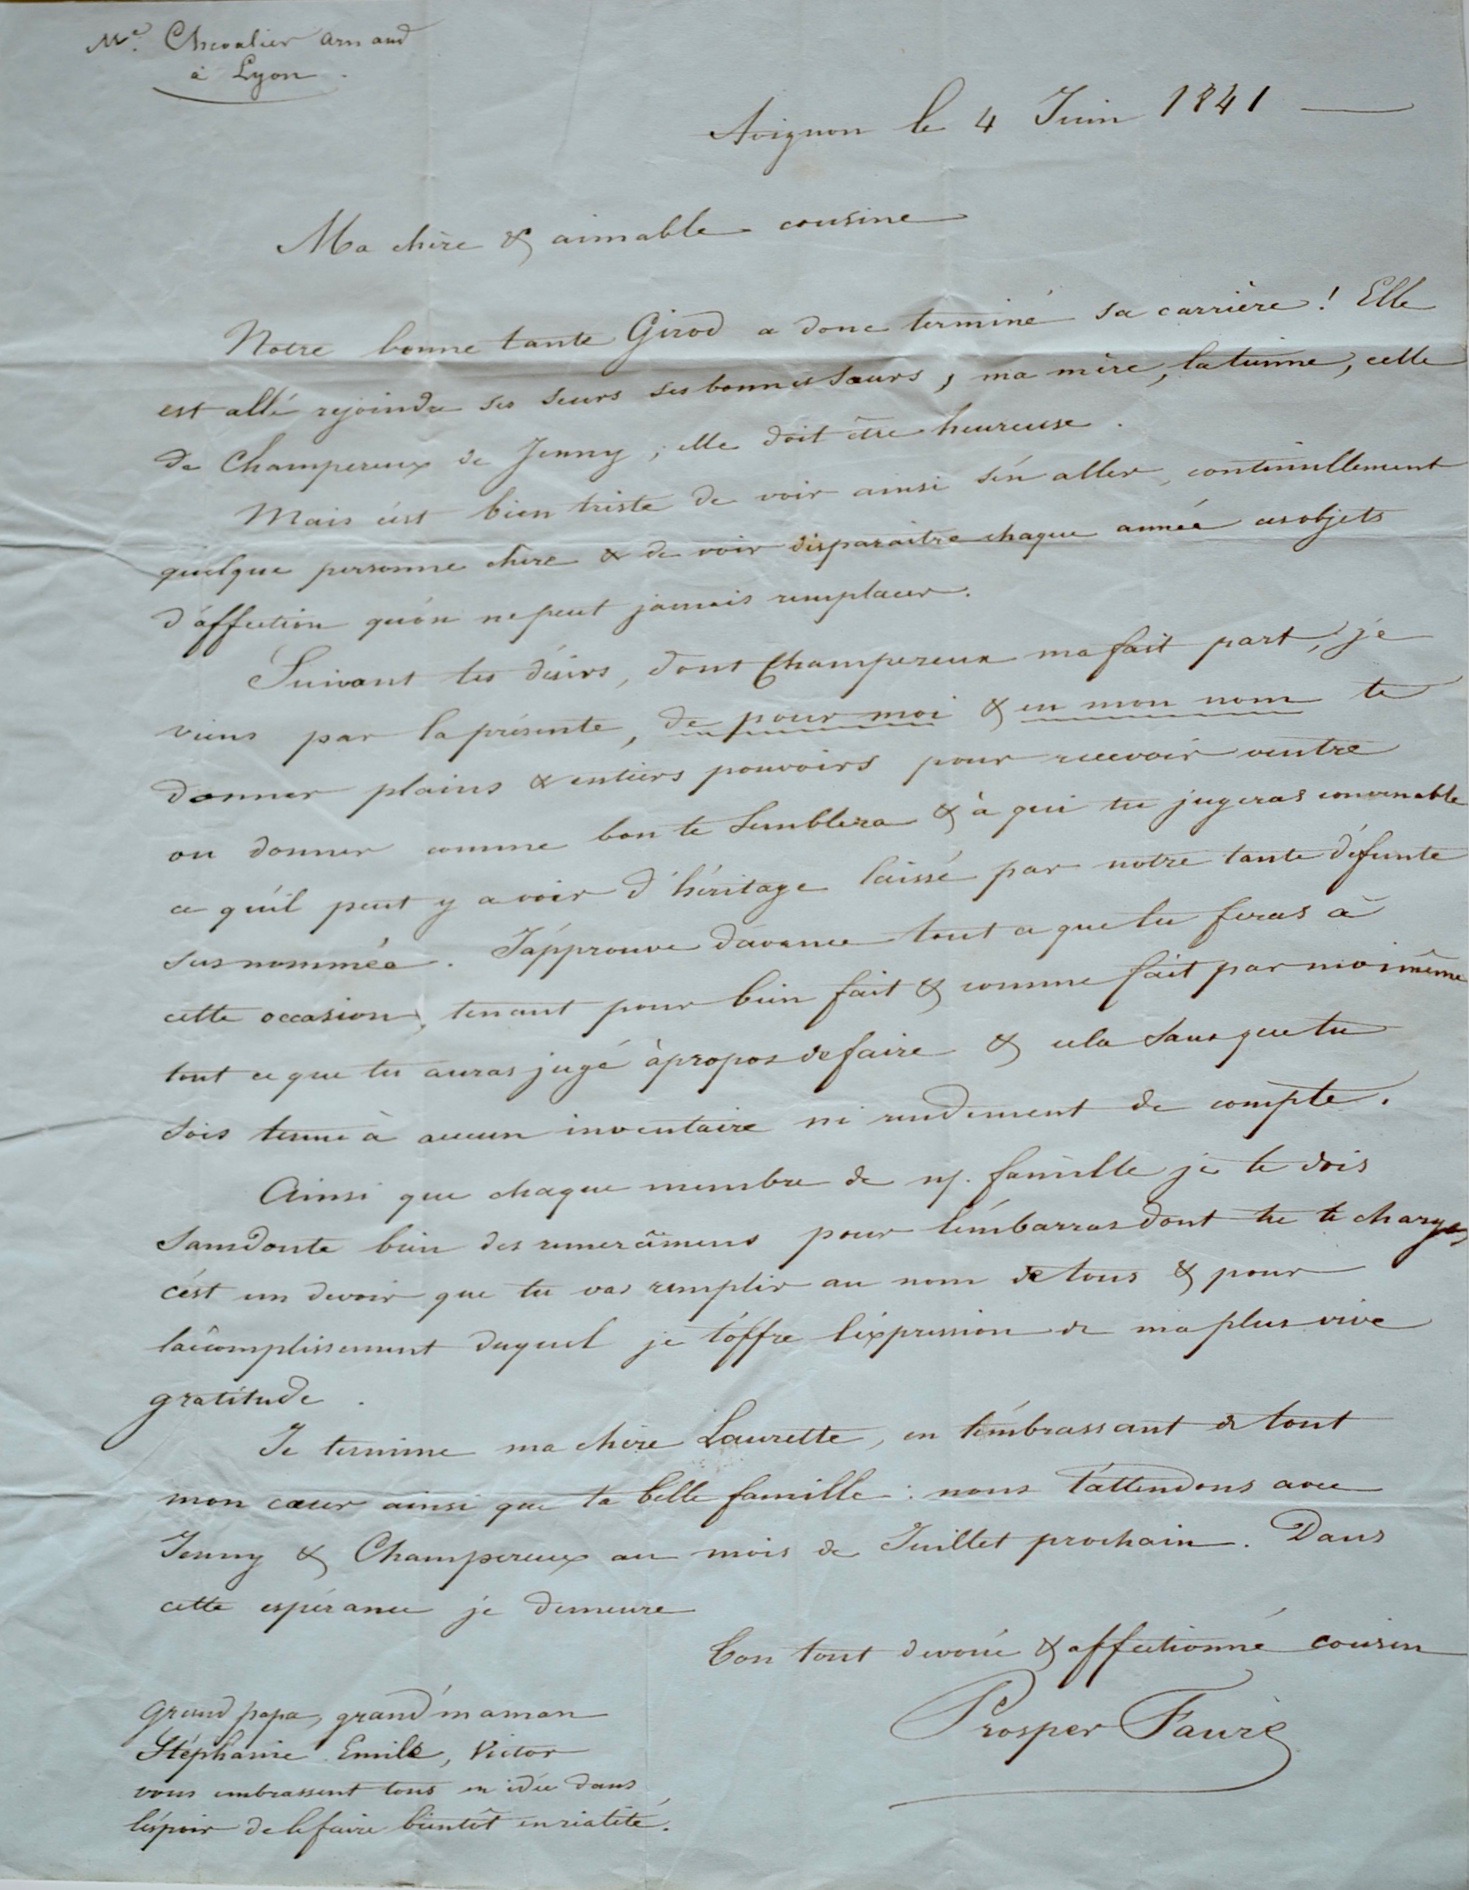 Me. Chevalier Arnaud
à Lyon.
Avignon le 4 Juin 1841
Ma chère & aimable cousine
Notre bonne tante Girod a donc terminé sa carrière! Elle
est allé rejoindre ses seurs ses bonnes sœurs, ma mère, la tienne, celle
de Champereux de Jenny; elle doit être heureuse.
Mais c'est bien triste de voir ainsi s'én aller, continuellement
quelque personne chère & de voir disparaître chaque année ces objets
d'áffection qu'ón ne peut jamais remplacer.
Suivant tes désirs, dont Champereux ma fait part, je
viens par la présente, de pour moi & en mon nom te
donner plains & entiers pouvoirs pour recevoir ventre
ou donner comme bon te semblera & à qui tu jugeras convenable
ce qu'il peut y avoir d'héritage laissé par notre tante défunte
susnommée. J'approuve d'avance tout ce que tu feras à
cette occasion, tenant pour bien fait & comme fait par moi même
tout ce que tu auras jugé àpropos de faire & cela sans que tu
sois tenue à aucun inventaire ni rendement de compte.
Ainsi que chaque membre de n/. famille je te dois
sansdoute bien des remercîmens pour l'émbarras dont tu te charges,
c'ést un devoir que tu vas remplir au nom de tous & pour
lacomplissement duquel je t'óffre l'éxpression de ma plus vive
gratitude.
Je termine ma chère Laurette, en t'émbrassant de tout
mon cœur ainsi que ta belle famille: nous t'attendons avec
Jenny & Champereux au mois de Juillet prochain. Dans
cette espérance je demeure
Ton tout devoué & affectionné cousin
Prosper Faure
Grand papa, grand'maman
Stéphanie Emile, Victor
vous embrassent tous en idée dans
l'éspoir de le faire bientôt en réalité.